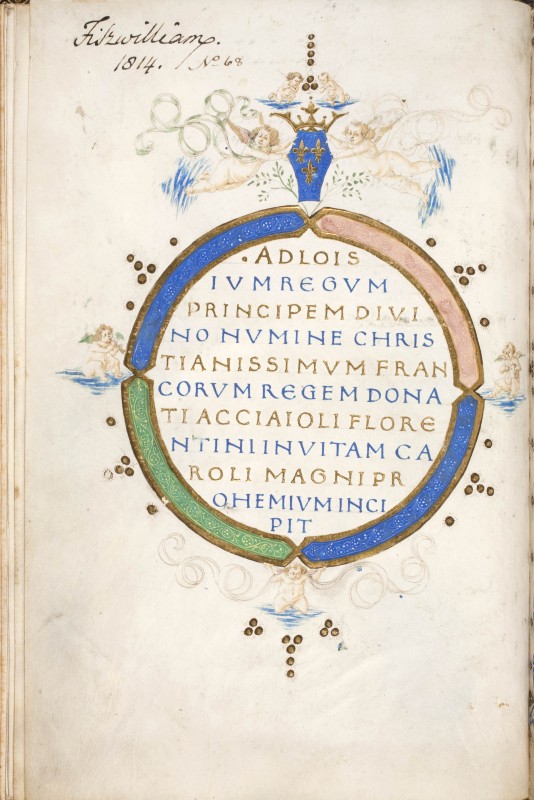 Fitzwilliam.
1814. / No 68
.ADLOIS
IVMREGVM
PRINCIPEM DIVI
NO NVMINE CHRIS
TIANISSIMVM FRAN
CORVM REGEM DONA
TI ACCIAIOLI FLORE
NTINI INVITAM CA
ROLI MAGNI PR
OHEMIVM INCI
PIT